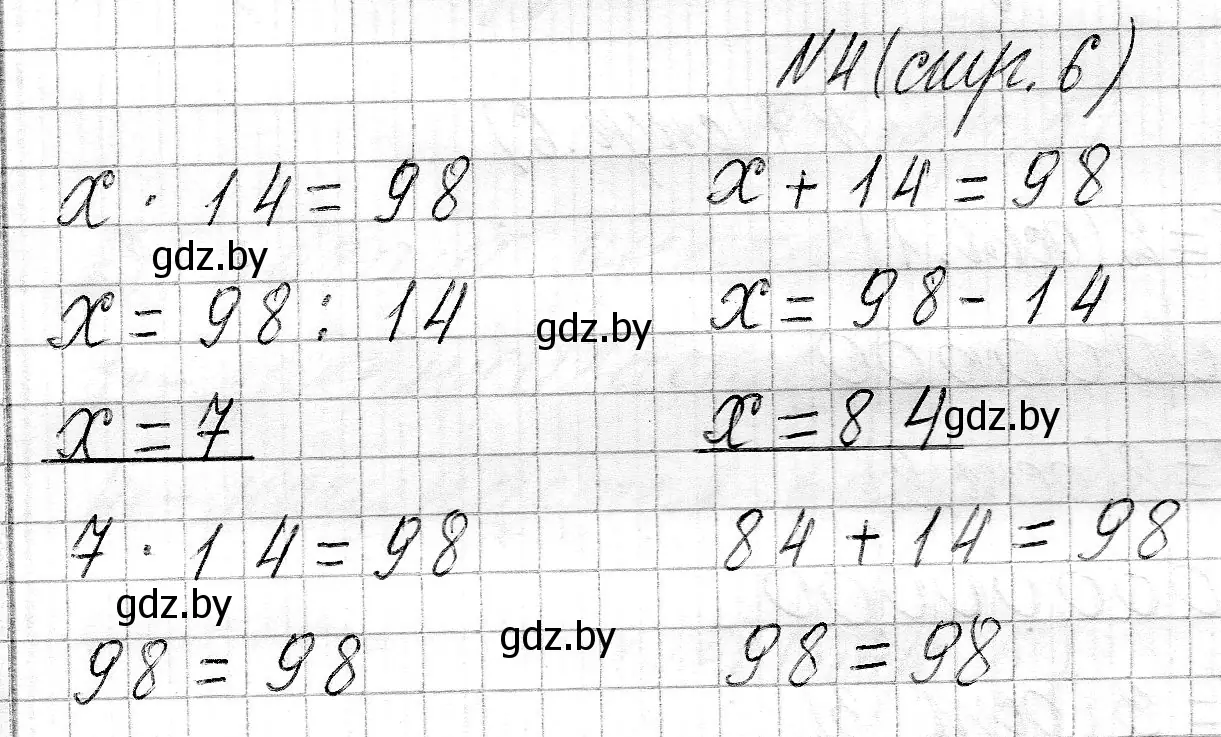 №4 (стр. 6)
x · 14 = 98
x + 14 = 98
gdz.by
x = 98 : 14
x = 98 - 14
gdz.by
x = 7
x = 84
gdz.by
7 · 14 = 98
84 + 14 = 98
gdz.by
98 = 98
gdz.by
98 = 98